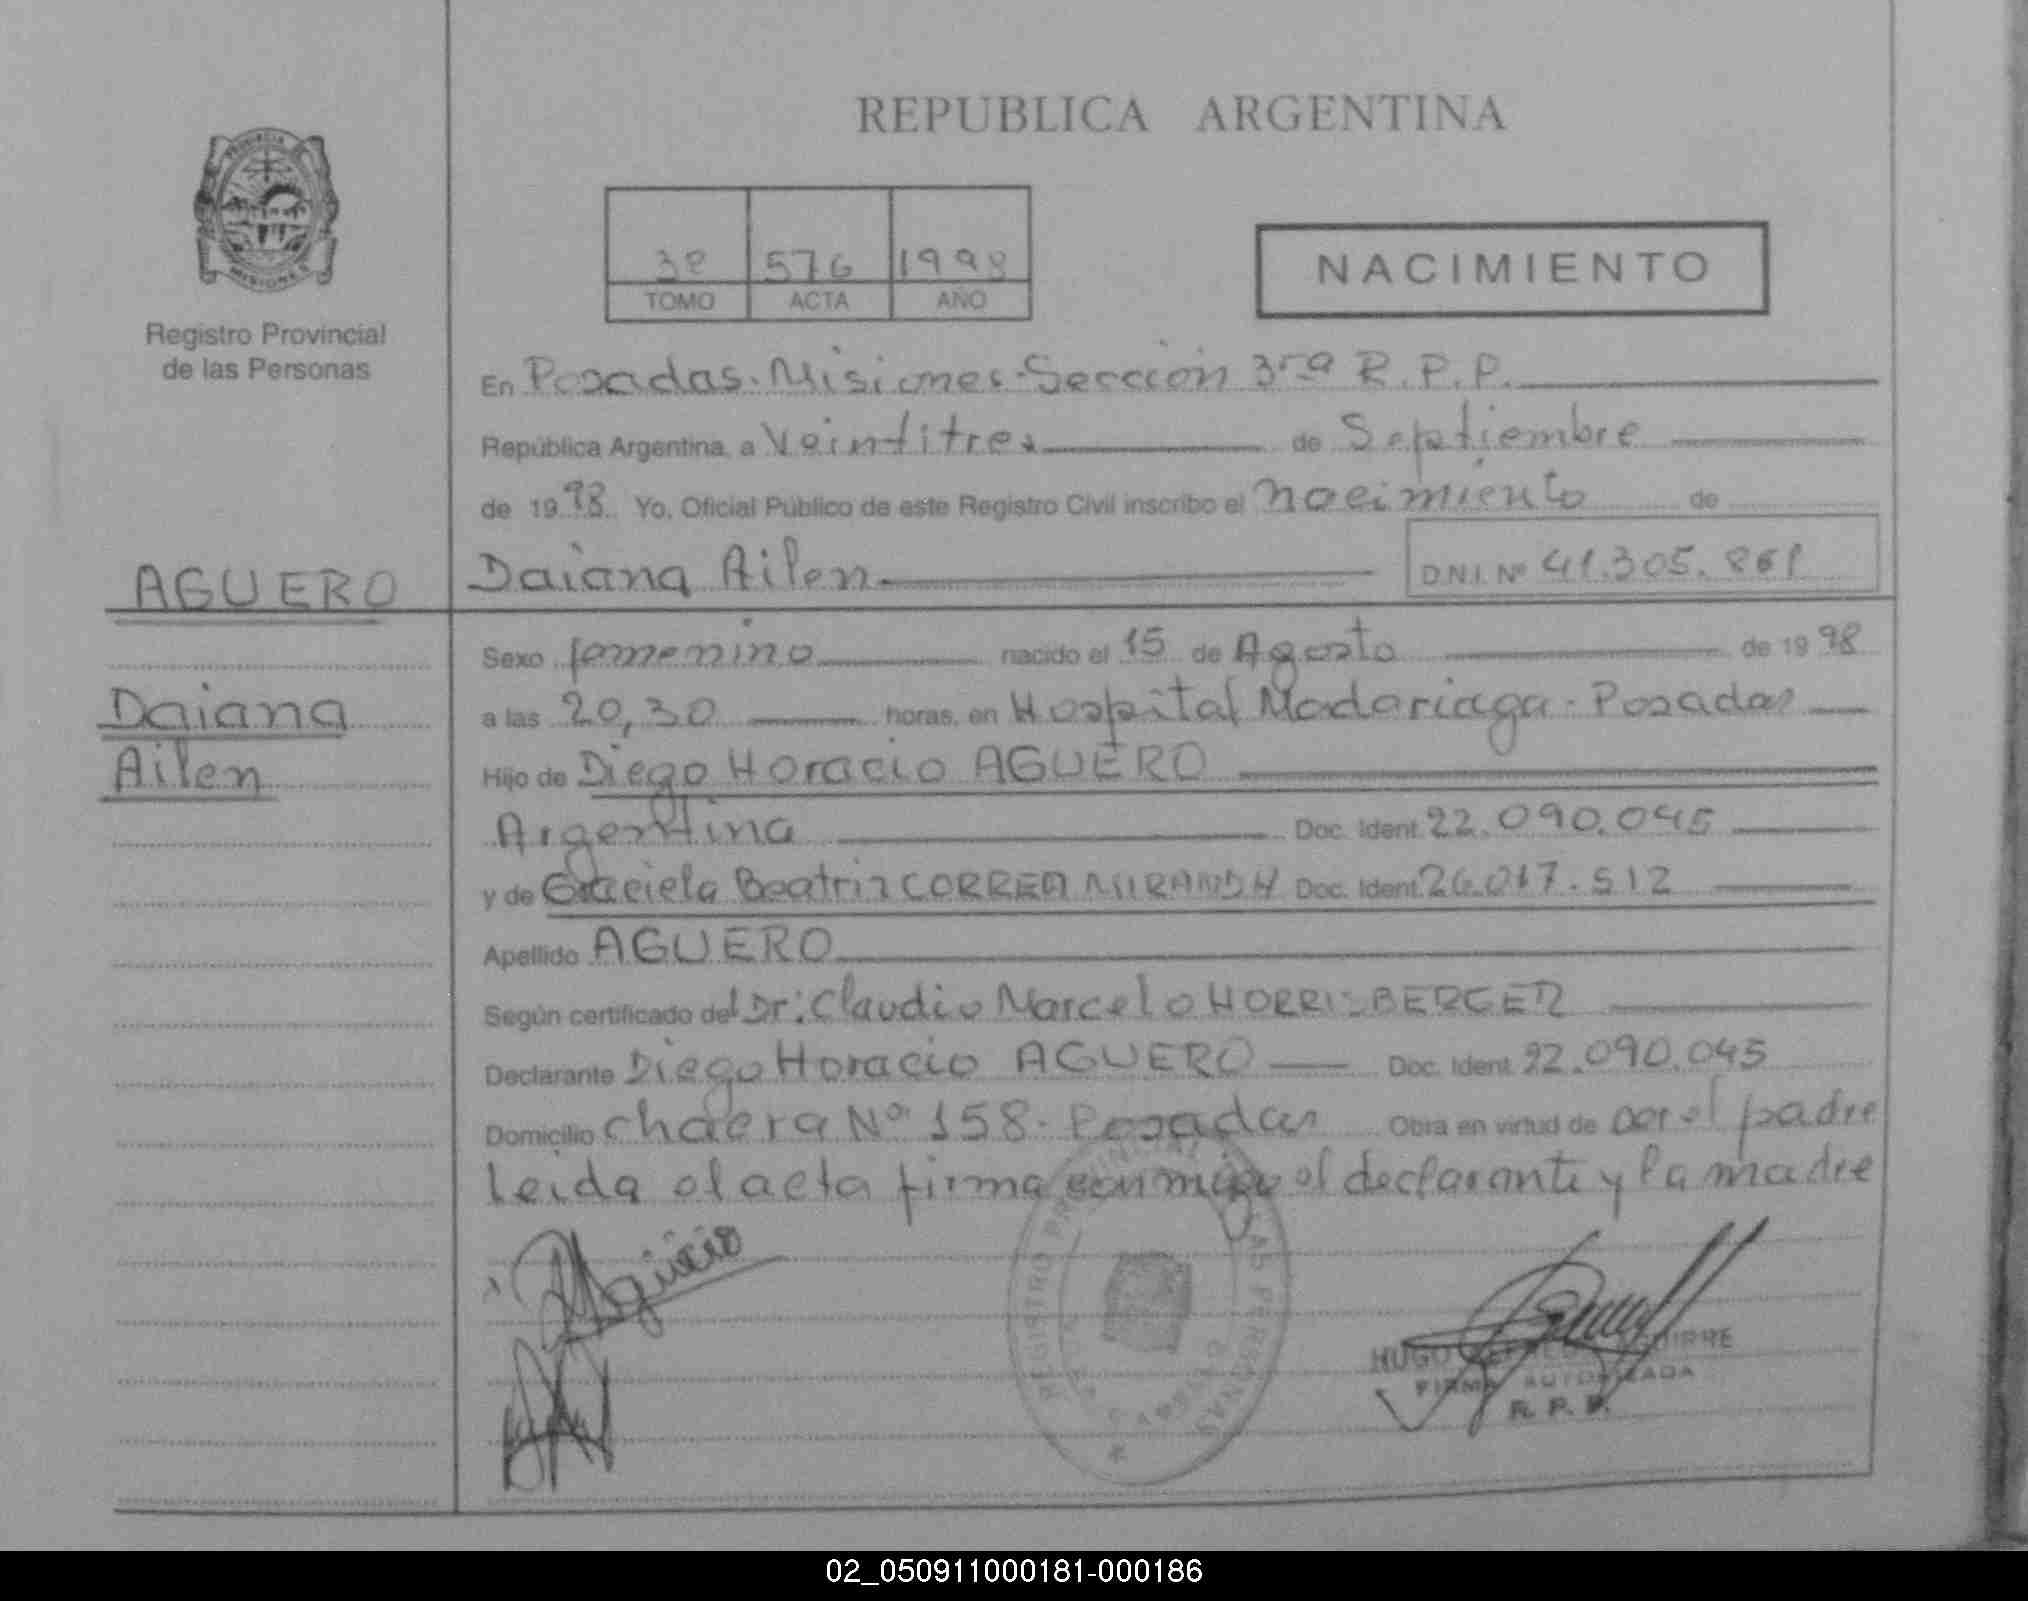 REPUBLICA ARGENTINA
PROVINCIA
MISIONES
Registro Provincial
de las Personas
3º 576 1998
TOMO ACTA AÑO
NACIMIENTO
En Posadas. Misiones. Sección 3ra R.P.P.
República Argentina, a Veintitres de Septiembre
de 1998 Yo, Oficial Público de este Registro Civil inscribo el nacimiento de
AGUERO
Daiana Ailen D.N.I. Nº 41.305.861
Sexo femenino nacido el 15 de Agosto de 1998
Daiana
a las 20,30 horas, en Hospital Madariaga - Posadas
Ailen
Hijo de Diego Horacio AGUERO
Argentina Doc. Ident. 22.090.045
y de Graciela Beatriz CORREA MIRANDA Doc. Ident. 26.017.512
Apellido AGUERO
Según certificado del Dr: Claudio Marcelo HORRISBERGER
Declarante Diego Horacio AGUERO Doc. Ident. 22.090.045
Domicilio Chacra Nº 158. Posadas Obra en virtud de ser el padre
Leida el acta firma conmigo el declarante y la madre
REGISTRO PROVINCIAL DE LAS PERSONAS
HUGO AGUIRRE
FIRMA AUTORIZADA
R. P. P.
02_050911000181-000186